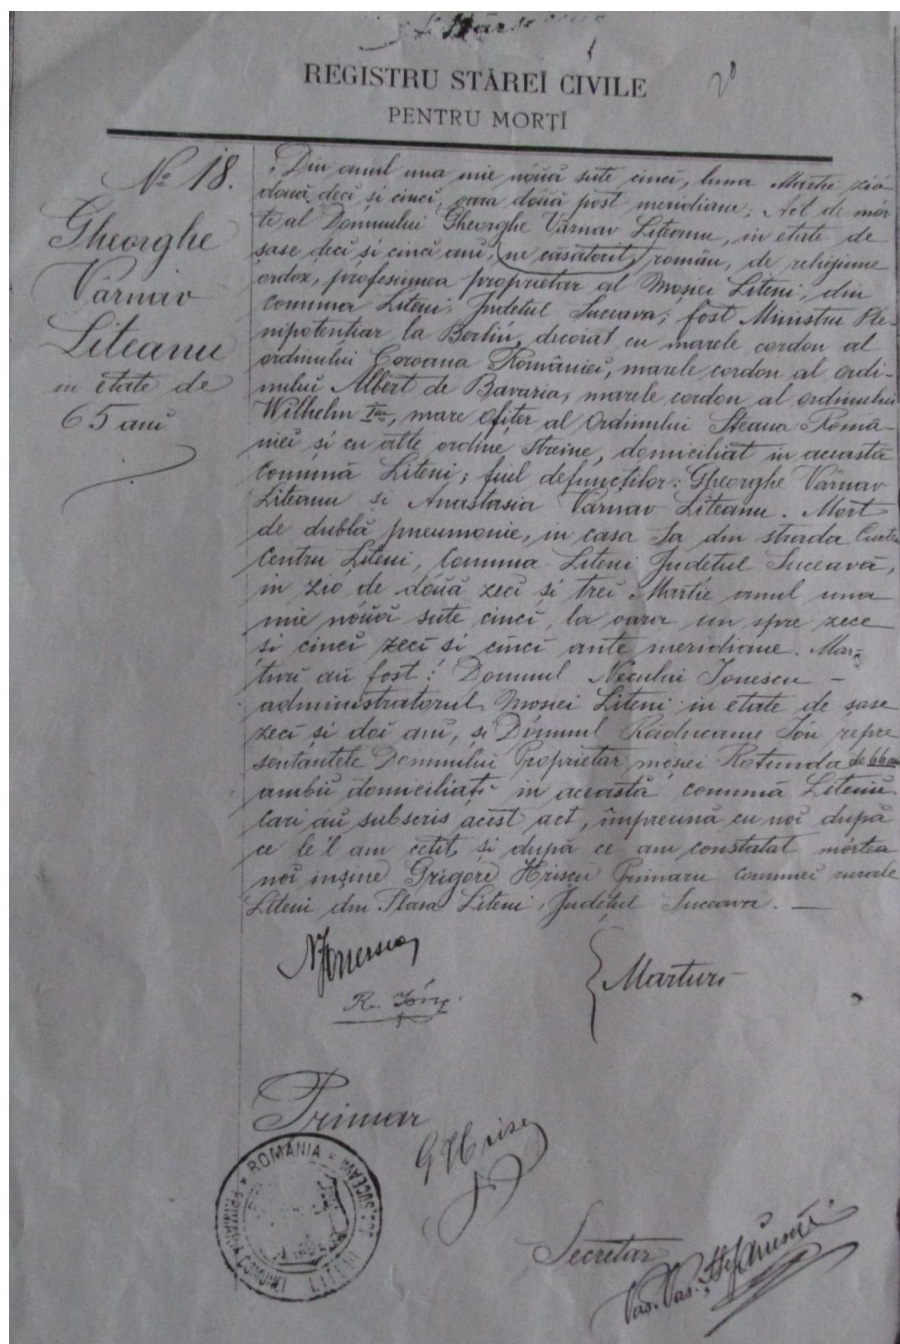 REGISTRU STĂREĬ CIVILE
PENTRU MORȚĬ
No 18.
Gheorghe
Vârnav
Liteanu
in etate de
65 ani
Din anul una mie nóuă sute cinci, luna Martie zió
două deci si cinci, oara dóuă post meridiane; Act de mór
te al Domnului Gheorghe Vârnav Liteanu, in etate de
șase deci și cinci ani, ne căsătorit, român, de religiune
ordox, profesiunea proprietar al Moșiei Liteni, din
comuna Liteni Județul Suceava; fost Ministru Ple-
nipotențiar la Berlin, decorat cu marele cordon al
ordinului Coroana României, marele cordon al ordi-
nului Albert de Bavaria, marele cordon al ordinului
Wilhelm Iiu, mare ofițer al Ordinului Steaua Româ-
niei și cu alte ordine streine, domiciliat in aceasta
comună Liteni; fiul defuncților: Gheorghe Vârnav
Liteanu si Anastasia Vârnav Liteanu. Mort
de dublă pneumonie, in casa Sa din strada
Centru Liteni, Comuna Liteni Județul Suceavă,
in zio de două zeci si trei Martie anul una
mie nóuă sute cinci, la oara un spre zece
si cinci zeci si cinci ante meridiane. Mar-
turi au fost: Domnul Neculai Ionescu -
administratorul Mosiei Liteni in etate de șase
zeci și doi ani, si Domnul Răduceanu Ión repre
sentantele Domnului Proprietar moșiei Rotunda de 66 ani
ambii domiciliați in această comună Liteniu
Cari au subscris acest act, împreună cu noi după
ce le'l am cetit, si după ce am constatat mórtea
noi inșine Grigore Hrișcu Primaru comunei rurale
Liteni din Plasa Liteni, Județul Suceava. —
N Ionescu
R. Ión
Marturi
Primar
ROMÂNIA
PRIMARIA COMUNEI LITENI
JUD. SUCEAVA
Secretar
Vas. Vas. Ștefănescu